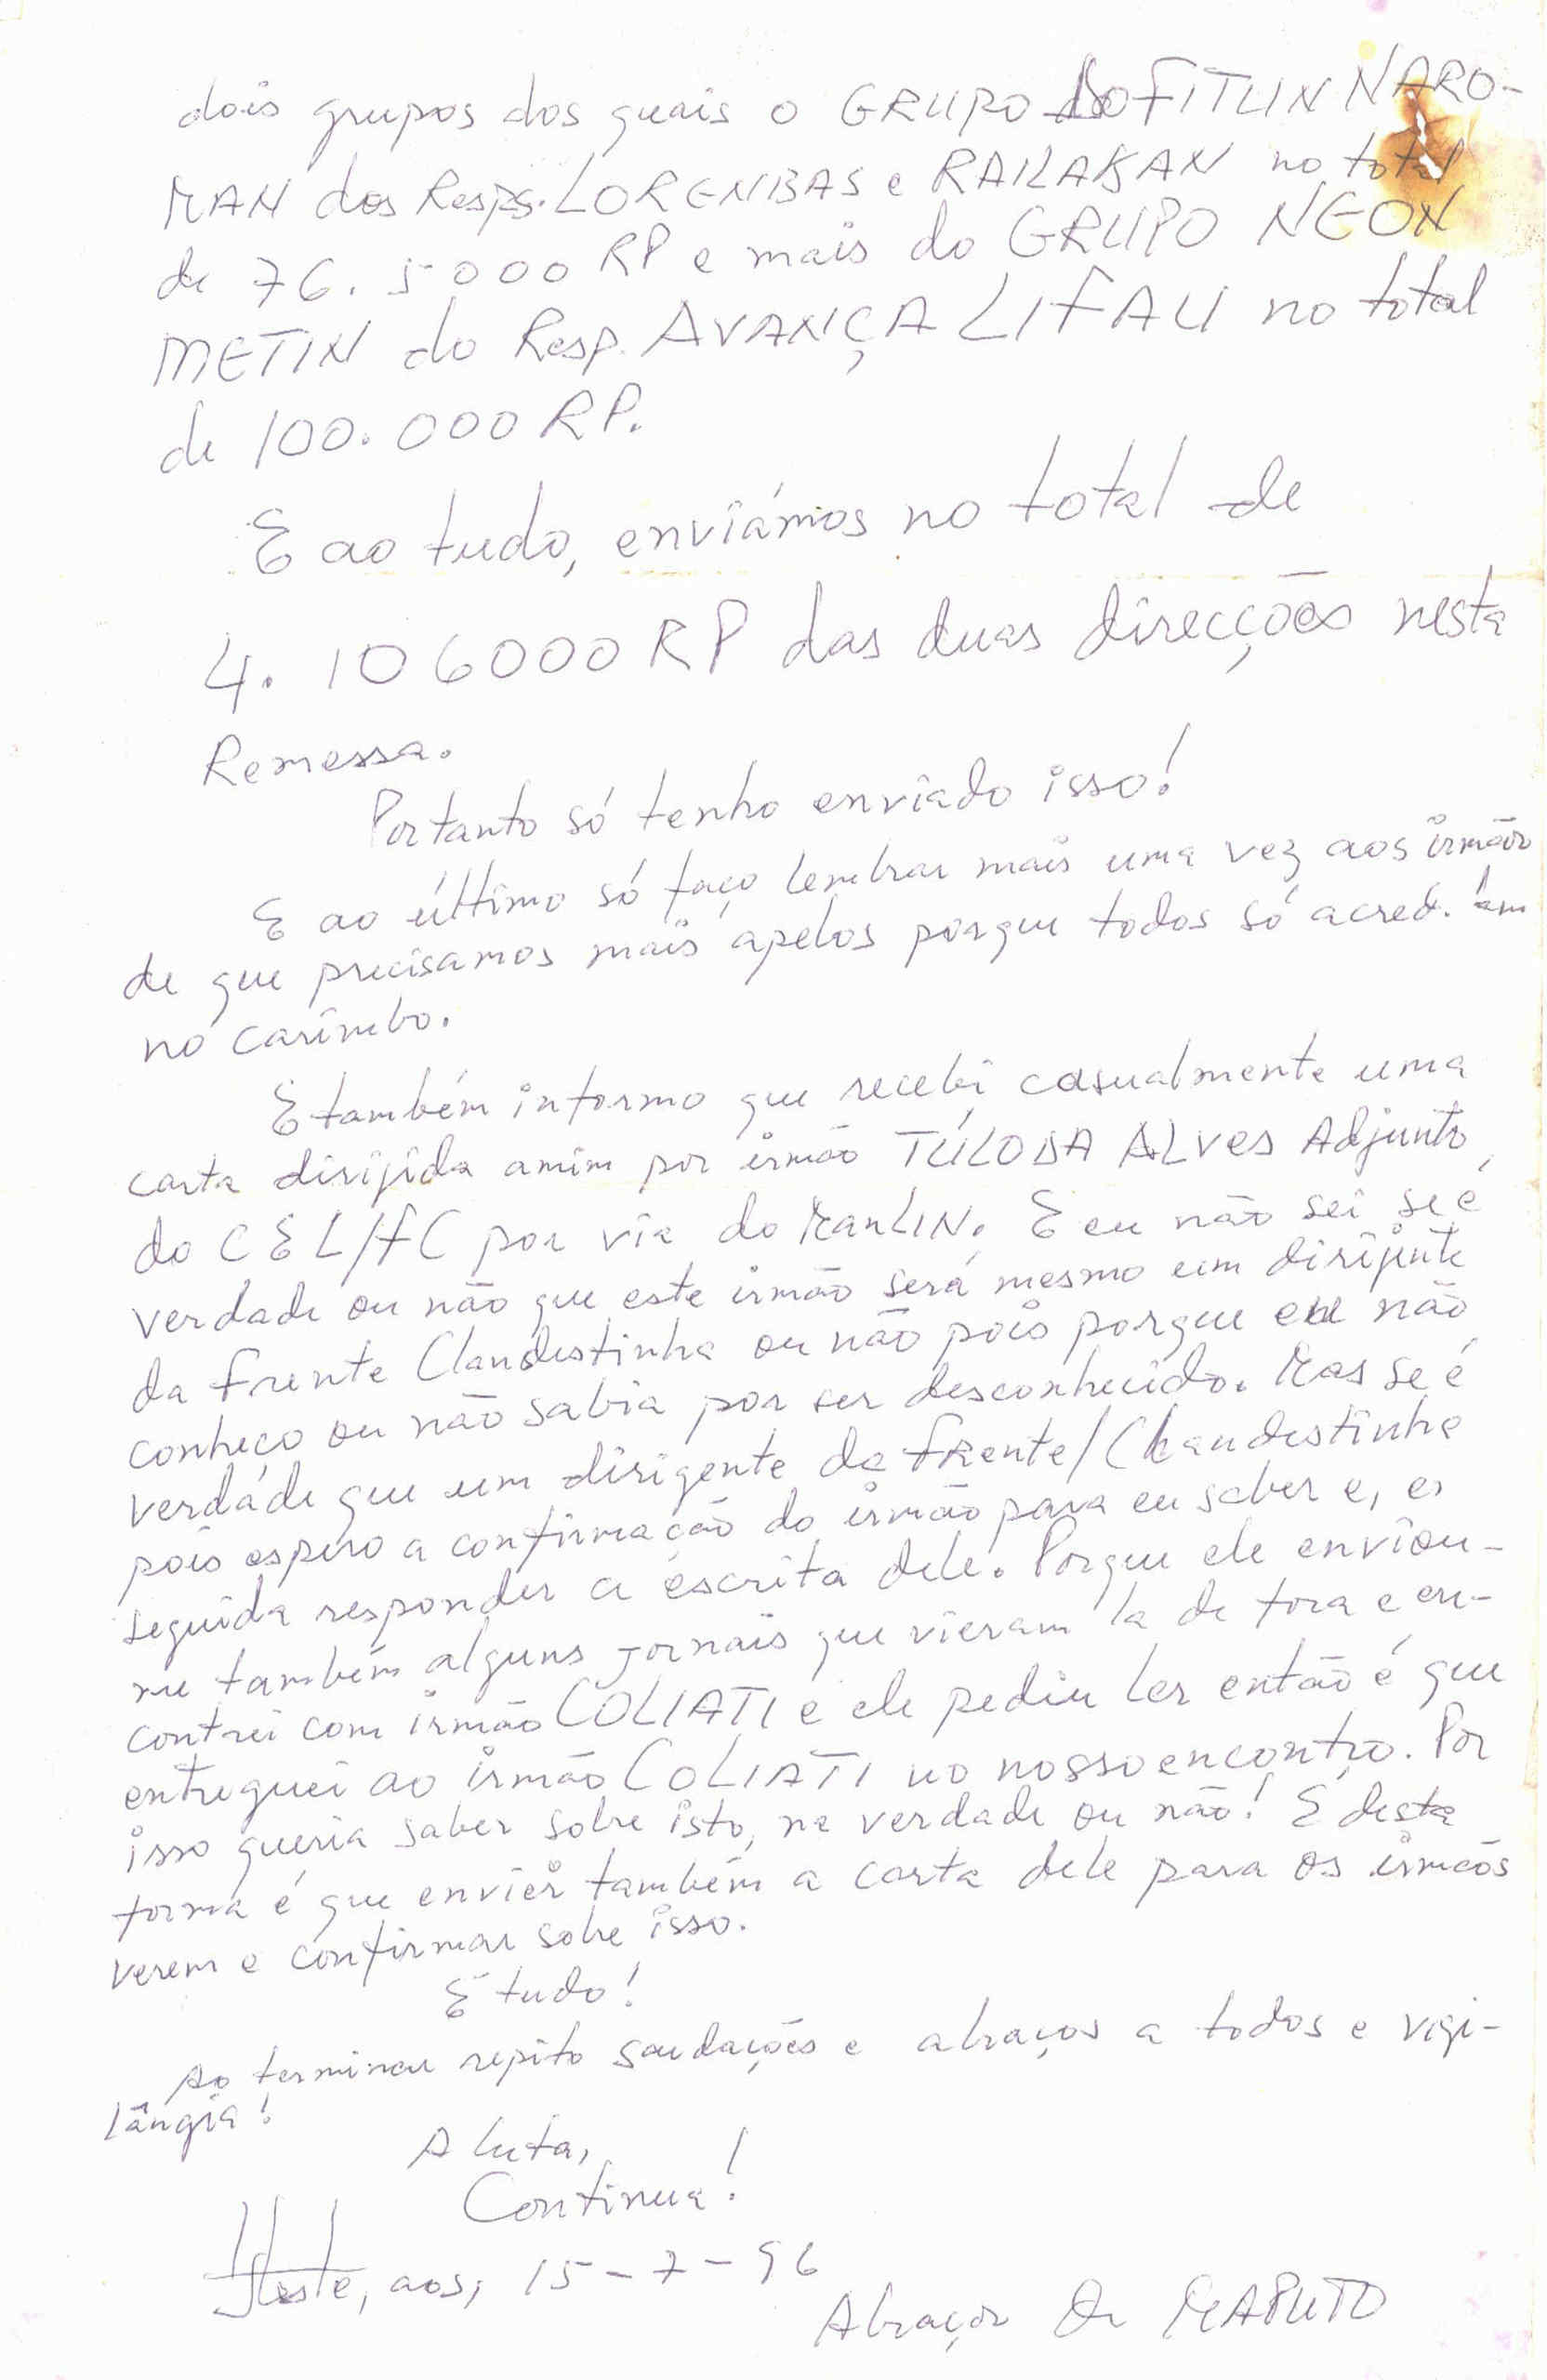 dois grupos dos quais o GRUPO DO FITUN NARO-
MAN dos Resps. LORENBAS e RAILAKAN no total
de 76.5000 RP e mais do GRUPO NEON
METIN do Resp. AVANÇA LIFAU no total
de 100.000 RP.
E ao tudo, enviámos no total de
4.106000 RP das duas direcções nesta
Remessa.
Portanto só tenho enviado isso!
E ao últtimo só faço lembrar mais uma vez aos irmãos
de que precisamos mais apelos porque todos só acreditam
no carimbo.
E também informo que recebi casualmente uma
carta dirijida amim por irmão TÚLODA ALVES Adjunto
do CEL/FC por via do ManLIN. E eu não sei se é
verdade ou não que este irmão será mesmo um dirijente
da Frente Clandestinha ou não pois porque eu não
conheço ou não sabia por ser desconhecido. Mas se é
verdáde que um dirigente da FRente/Clandestinha
pois espero a confirmação do irmão para eu saber e, e,
seguida responder a escrita dele. Porque ele enviou-
me também alguns jornais que vieram la de fora e en-
contrei com irmão COLIATI e ele pediu ler então é que
entreguei ao irmão COLIATI no nosso encontro. Por
isso queria saber sobre isto, na verdade ou não! E desta
forma é que enviei também a carta dele para os irmãos
verem e confirmar sobre isso.
E tudo!
Ao terminar repito saudações e abraços a todos e vigi-
lângia!
A luta,
Continua!
Leste, aos, 15-7-96
Abraços de MAPUTO